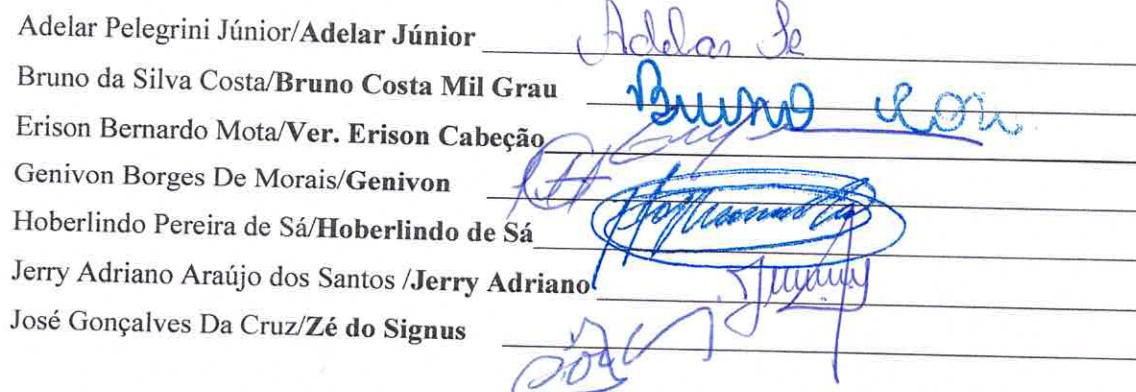 Adelar Pelegrini Júnior/Adelar Júnior Adelar
Bruno da Silva Costa/Bruno Costa Mil Grau Bruno
Erison Bernardo Mota/Ver. Erison Cabeção
Genivon Borges De Morais/Genivon
Hoberlindo Pereira de Sá/Hoberlindo de Sá
Jerry Adriano Araújo dos Santos /Jerry Adriano
José Gonçalves Da Cruz/Zé do Signus